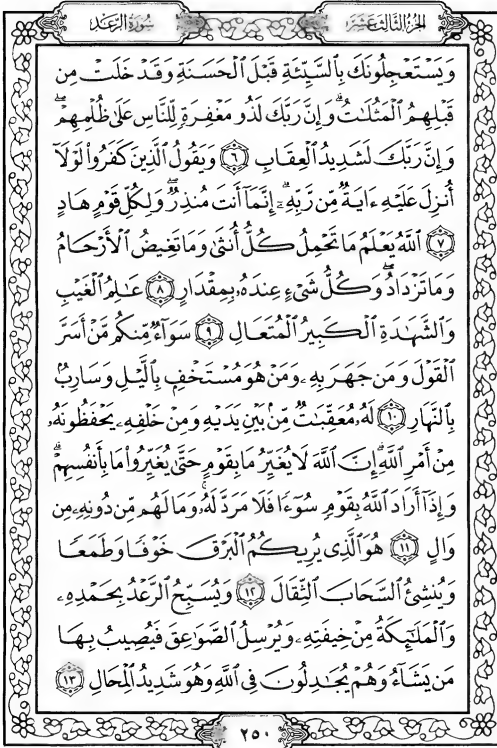 الجزء الثالث عشر
سورة الرعد
وَيَسْتَعْجِلُونَكَ بِالسَّيِّئَةِ قَبْلَ الْحَسَنَةِ وَقَدْ خَلَتْ مِن
قَبْلِهِمُ الْمَثُلَاتُ ۗ وَإِنَّ رَبَّكَ لَذُو مَغْفِرَةٍ لِّلنَّاسِ عَلَىٰ ظُلْمِهِمْ ۖ
وَإِنَّ رَبَّكَ لَشَدِيدُ الْعِقَابِ ٦ وَيَقُولُ الَّذِينَ كَفَرُوا۟ لَوْلَآ
أُنزِلَ عَلَيْهِ ءَايَةٌ مِّن رَّبِّهِۦٓ ۗ إِنَّمَآ أَنتَ مُنذِرٌ ۖ وَلِكُلِّ قَوْمٍ هَادٍ
٧ اللَّهُ يَعْلَمُ مَا تَحْمِلُ كُلُّ أُنثَىٰ وَمَا تَغِيضُ الْأَرْحَامُ
وَمَا تَزْدَادُ ۖ وَكُلُّ شَىْءٍ عِندَهُۥ بِمِقْدَارٍ ٨ عَـٰلِمُ الْغَيْبِ
وَالشَّهَـٰدَةِ الْكَبِيرُ الْمُتَعَالِ ٩ سَوَآءٌ مِّنكُم مَّنْ أَسَرَّ
الْقَوْلَ وَمَن جَهَرَ بِهِۦ وَمَنْ هُوَ مُسْتَخْفٍۭ بِالَّيْلِ وَسَارِبٌۢ
بِالنَّهَارِ ١٠ لَهُۥ مُعَقِّبَـٰتٌ مِّنۢ بَيْنِ يَدَيْهِ وَمِنْ خَلْفِهِۦ يَحْفَظُونَهُۥ
مِنْ أَمْرِ اللَّهِ ۗ إِنَّ اللَّهَ لَا يُغَيِّرُ مَا بِقَوْمٍ حَتَّىٰ يُغَيِّرُوا۟ مَا بِأَنفُسِهِمْ ۗ
وَإِذَآ أَرَادَ اللَّهُ بِقَوْمٍ سُوٓءًا فَلَا مَرَدَّ لَهُۥ ۚ وَمَا لَهُم مِّن دُونِهِۦ مِن
وَالٍ ١١ هُوَ الَّذِى يُرِيكُمُ الْبَرْقَ خَوْفًا وَطَمَعًا
وَيُنشِئُ السَّحَابَ الثِّقَالَ ١٢ وَيُسَبِّحُ الرَّعْدُ بِحَمْدِهِۦ
وَالْمَلَـٰٓئِكَةُ مِنْ خِيفَتِهِۦ وَيُرْسِلُ الصَّوَٰعِقَ فَيُصِيبُ بِهَا
مَن يَشَآءُ وَهُمْ يُجَـٰدِلُونَ فِى اللَّهِ وَهُوَ شَدِيدُ الْمِحَالِ ١٣
٢٥٠